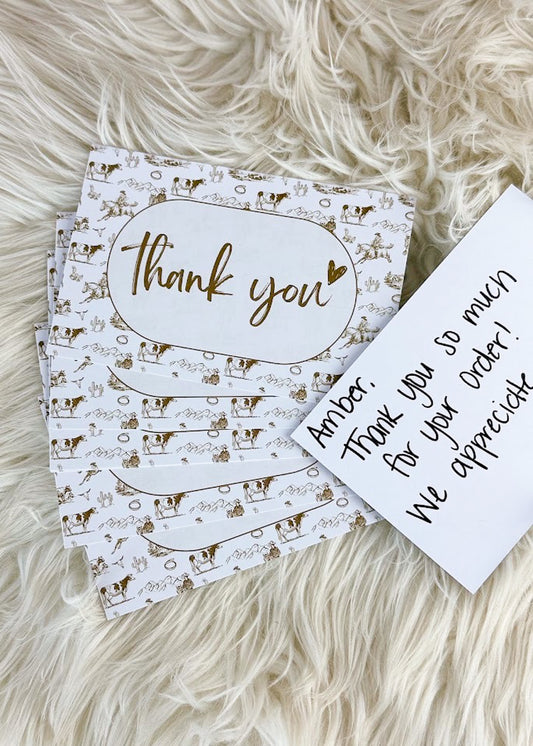 thank you
Amber,
Thank you so much
for your order!
We appreciate